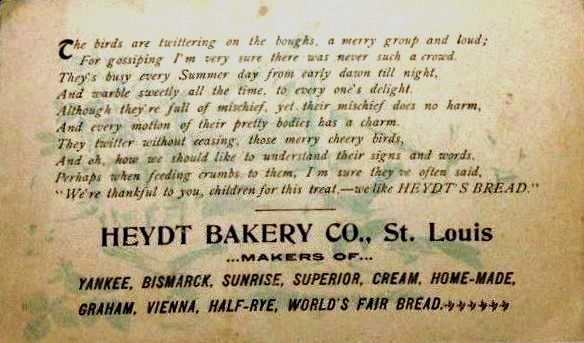 The birds are twittering on the boughs, a merry group and loud;
For gossiping I'm very sure there was never such a crowd.
They's busy every Summer day from early dawn till night,
And warble sweetly all the time, to every one's delight.
Although they're full of mischief, yet their mischief does no harm,
And every motion of their pretty bodies has a charm.
They twitter without ceasing, those merry cheery birds,
And oh, how we should like to understand their signs and words.
Perhaps when feeding crumbs to them, I'm sure they've often said,
"We're thankful to you, children for this treat,—we like HEYDT'S BREAD."
HEYDT BAKERY CO., St. Louis
...MAKERS OF...
YANKEE, BISMARCK, SUNRISE, SUPERIOR, CREAM, HOME-MADE,
GRAHAM, VIENNA, HALF-RYE, WORLD'S FAIR BREAD.